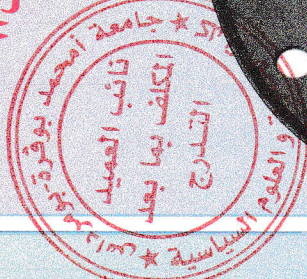 جامعة أمحمد بوقرة
والعلوم السياسية
نائب العميد
المكلف بما بعد
التدرج